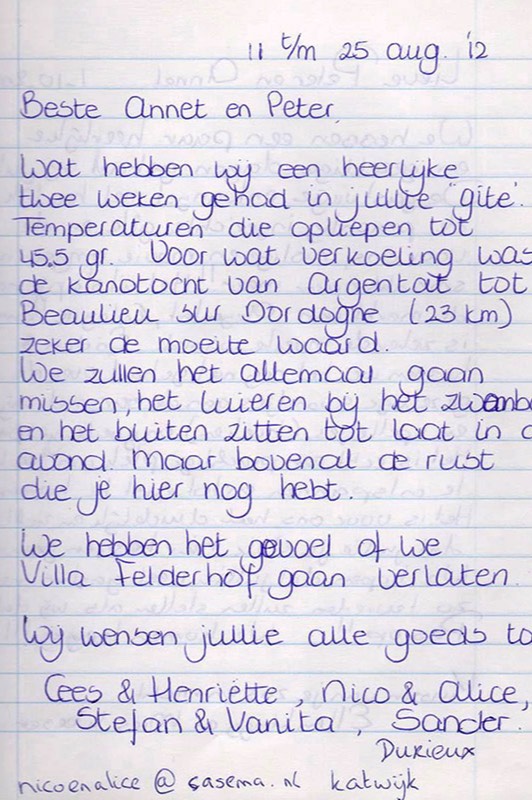 11 t/m 25 aug. '12
Beste Annet en Peter,
Wat hebben wij een heerlijke
twee weken gehad in jullie 'gite'.
Temperaturen die opliepen tot
45.5 gr. Voor wat verkoeling was
de kanotocht van Argentat tot
Beaulieu sur Dordogne (23 km)
zeker de moeite waard.
We zullen het allemaal gaan
missen, het luieren bij het zwemb
en het buiten zitten tot laat in d
avond. Maar bovenal de rust
die je hier nog hebt.
We hebben het gevoel of we
Villa Felderhof gaan verlaten.
Wij wensen jullie alle goeds to
Cees & Henriëtte, Nico & Alice,
Stefan & Vanita, Sander.
Durieux
nicoenalice @ sasema.nl katwijk